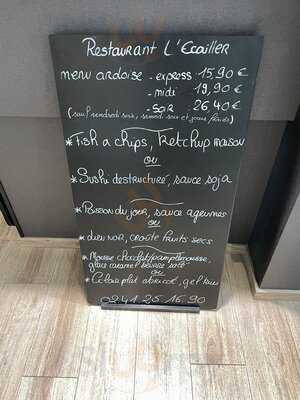 Restaurant L'Ecailler
menu ardoise - express 15,90 €
- midi 19,90 €
- soir 26.40 €
(sauf vendredi soir, samedi soir et jours fériés)
* Fish a chips, Ketchup maison
ou
* Sushi destructuré, sauce soja
* Poisson du jour, sauce agrumes
ou
* dieu noir, croûte fruits secs
* Mousse chocolat/pamplemousse,
glace caramel beurre salé
ou
* abricot, gel
02 41 25 16 90